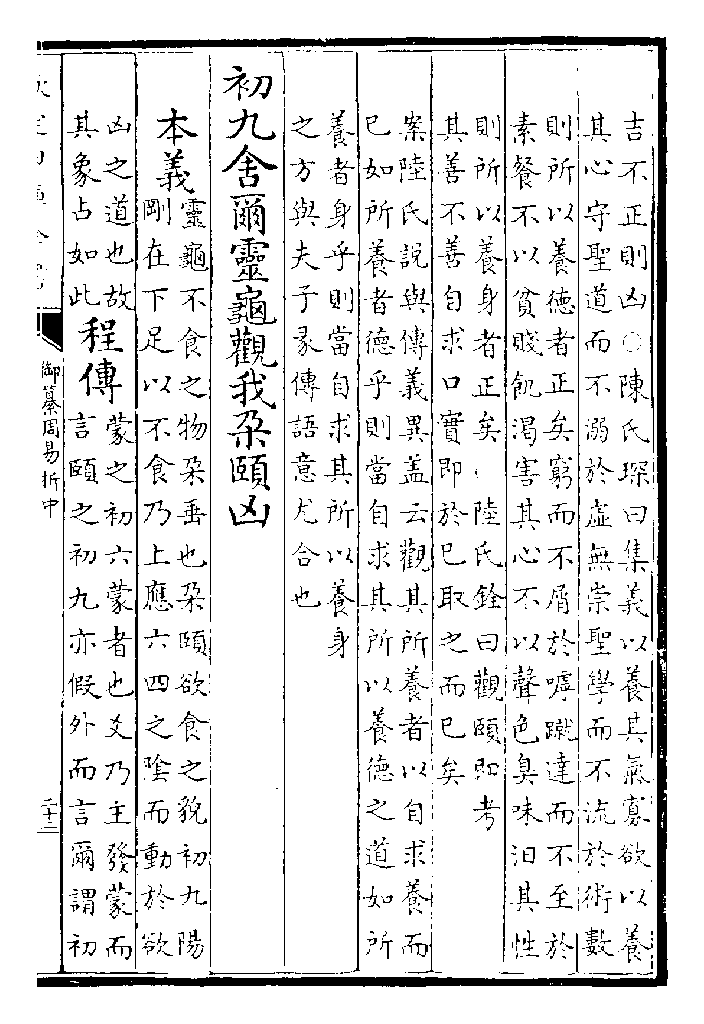 吉不正則凶○陳氏琛曰集義以養其氣寡欲以養
其心守聖道而不溺於虛無崇聖學而不流於術數
則所以養德者正矣窮而不屑於嘑蹴達而不至於
素餐不以貧賤飢渴害其心不以聲色臭味汨其性
則所以養身者正矣、陸氏銓曰觀頤即考
其善不善自求口實即於已取之而已矣
案陸氏說與傳義異盖云觀其所養者以自求養而
已如所養者德乎則當自求其所以養德之道如所
養者身乎則當自求其所以養身
之方與夫子彖傳語意尤合也
初九舍爾靈龜觀我朶頤凶
本義靈龜不食之物朶垂也朶頤欲食之貌初九陽
剛在下足以不食乃上應六四之陰而動於欲
凶之道也故
其象占如此程傳蒙之初六蒙者也爻乃主發蒙而
言頤之初九亦假外而言爾謂初
御纂周易折中
二十二